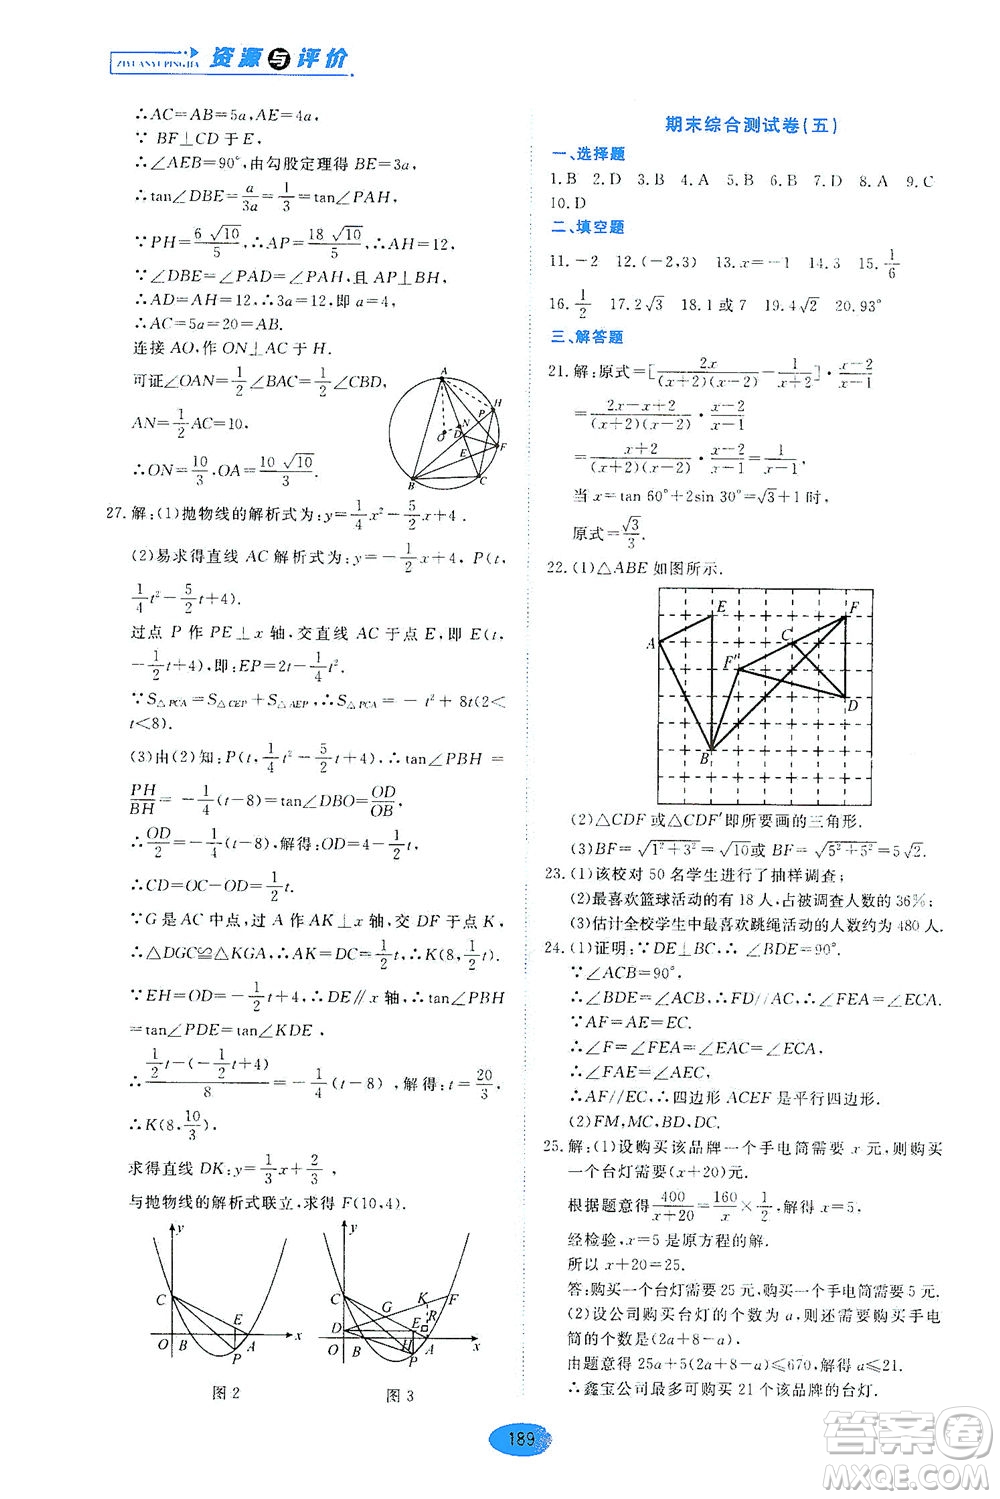 ZIYUANYUPINGJIA 资源与评价
∴AC=AB=5a,AE=4a,
∵ BF⊥CD于E,
∴∠AEB=90°,由勾股定理得BE=3a,
∴tan∠DBE=a/3a=1/3=tan∠PAH,
∵PH=6√10/5,∴AP=18√10/5,∴AH=12,
∵∠DBE=∠PAD=∠PAH,
∴AD=AH=12,∴3a=12,即a=4,
∴AC=5a=20=AB.
连接AO,作ON⊥AC于H.
可证∠OAN=1/2∠BAC=1/2∠CBD,
AN=1/2AC=10,
∴ON=10/3,OA=10√10/3.
A
H
P
N
O
D
F
E
B
C
27.解:(1)抛物线的解析式为:y=1/4x²-5/2x+4.
(2)易求得直线AC解析式为:y=-1/2x+4,P(t,
1/4t²-5/2t+4).
过点P作PE⊥x轴,交直线AC于点E,即E(t,
-1/2t+4),即:EP=2t-1/4t².
∵S△PCA=S△CEP+S△AEP,∴S△PCA=-t²+8t(2<
t<8).
(3)由(2)知:P(t,1/4t²-5/2t+4),∴tan∠PBH=
PH/BH=-1/4(t-8)=tan∠DBO=OD/OB
∴OD/2=-1/4(t-8),解得:OD=4-1/2t,
∴CD=OC-OD=1/2t.
∵G是AC中点,过A作AK⊥x轴,交DF于点K,
∴△DGC≌△KGA,∴AK=DC=1/2t,∴K(8,1/2t).
∵EH=OD=-1/2t+4,∴DE∥x轴,∴tan∠PBH
=tan∠PDE=tan∠KDE,
∴(1/2t-(-1/2t+4))/8=-1/4(t-8),解得:t=20/3,
∴K(8,10/3).
求得直线DK:y=1/3x+2/3,
与抛物线的解析式联立,求得F(10,4).
y
C
E
O
B
A
x
P
图2
y
C
G
K
F
R
D
E
O
B
H
A
x
P
图3
期末综合测试卷(五)
一、选择题
1.B 2.D 3.B 4.A 5.B 6.B 7.D 8.A 9.C
10.D
二、填空题
11.-2 12.(-2,3) 13.x=-1 14.3 15.1/6
16.1/2 17.2√3 18.1或7 19.4√2 20.93°
三、解答题
21.解:原式=[2x/(x+2)(x-2)-1/x+2]·x-2/1
=2x-x+2/(x+2)(x-2)·x-2/1
=x+2/(x+2)(x-2)·x-2/1=1/x-1,
当x=tan 60°+2sin 30°=√3+1时,
原式=√3/3.
22.(1)△ABE如图所示.
E
F
A
C
F″
D
B
(2)△CDF或△CDF′即所要画的三角形.
(3)BF=√1²+3²=√10或BF=√5²+5²=5√2.
23.(1)该校对50名学生进行了抽样调查;
(2)最喜欢篮球活动的有18人,占被调查人数的36%;
(3)估计全校学生中最喜欢跳绳活动的人数约为480人.
24.(1)证明:∵DE⊥BC,∴∠BDE=90°.
∵∠ACB=90°,
∴∠BDE=∠ACB,∴FD//AC,∴∠FEA=∠ECA.
∵AF=AE=EC.
∴∠F=∠FEA=∠EAC=∠ECA,
∴∠FAE=∠AEC,
∴AF//EC,∴四边形ACEF是平行四边形.
(2)FM,MC,BD,DC.
25.解:(1)设购买该品牌一个手电筒需要x元,则购买
一个台灯需要(x+20)元.
根据题意得400/x+20=160/x×1/2,解得x=5.
经检验,x=5是原方程的解.
所以x+20=25.
答:购买一个台灯需要25元,购买一个手电筒需要5元.
(2)设公司购买台灯的个数为a,则还需要购买手电
筒的个数是(2a+8-a).
由题意得25a+5(2a+8-a)≤670,解得a≤21.
∴鑫宝公司最多可购买21个该品牌的台灯.
189
答案圈
MXQE.COM